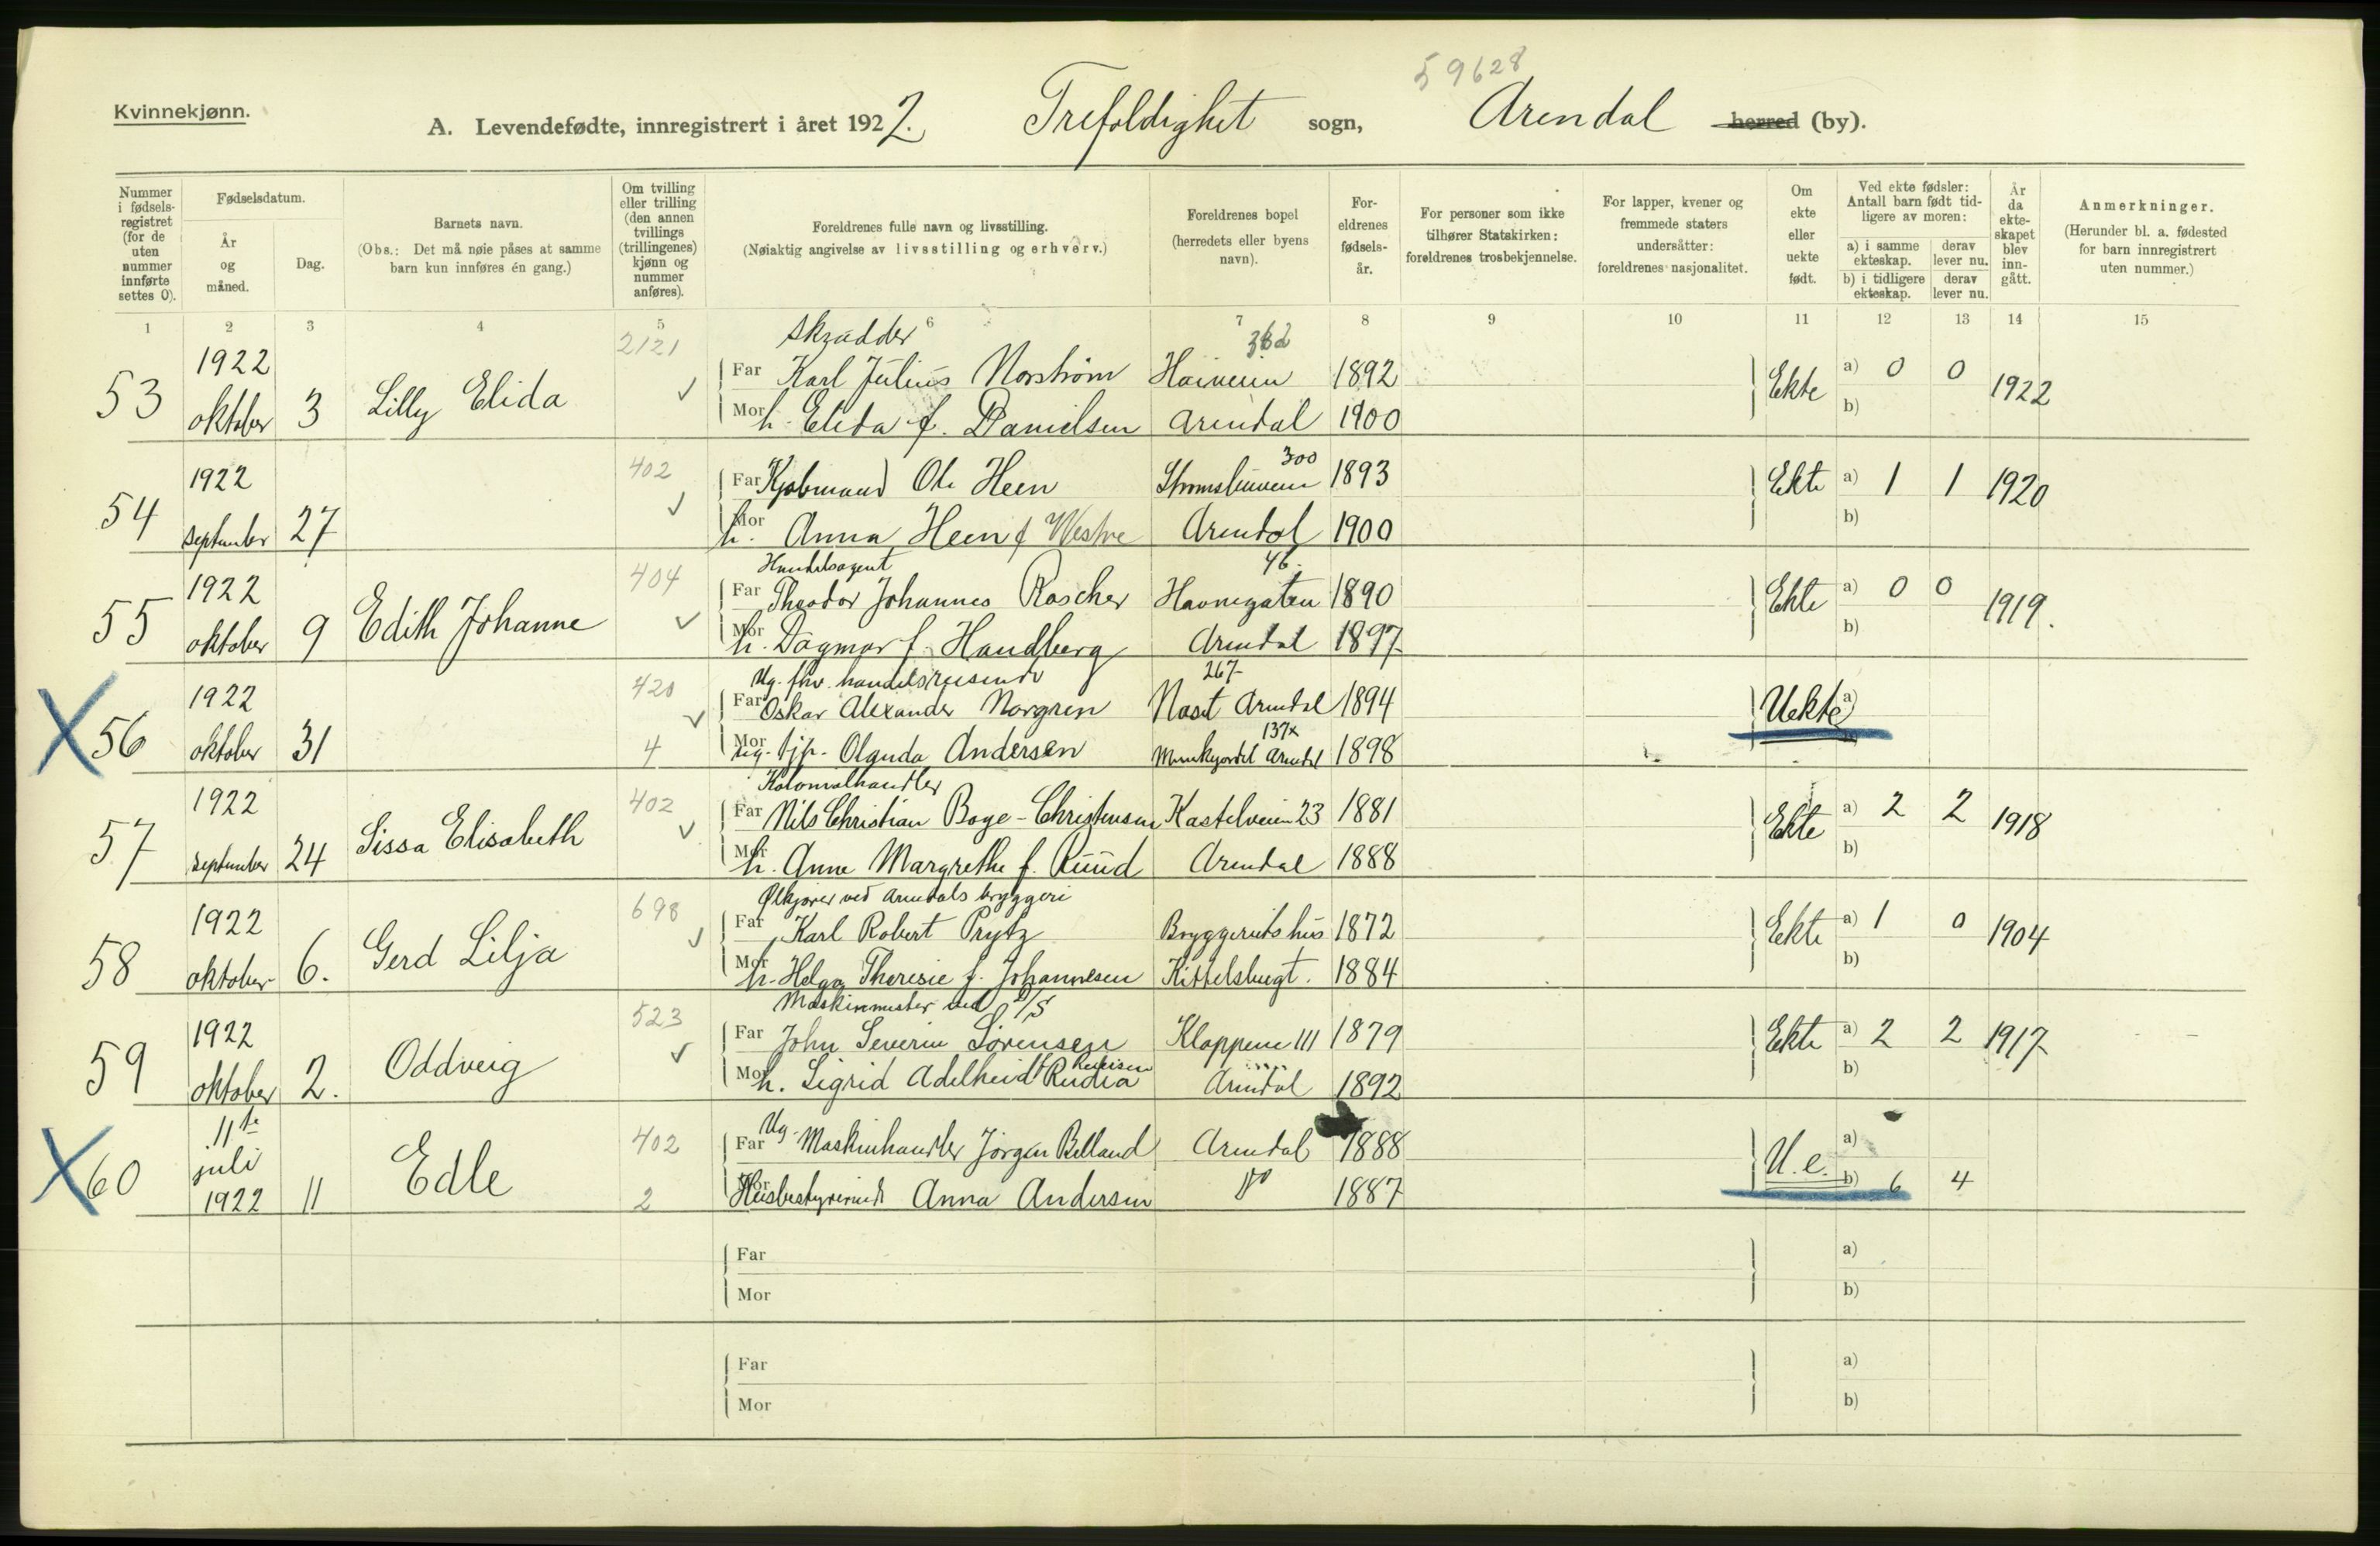 59628
Kvinnekjønn.
A. Levendefødte, innregistrert i året 1922. Trefoldighet sogn, Arendal herred (by).
Nummer i fødsels-registret (for de uten nummer innførte settes 0).
Fødselsdatum.
År og måned.
Dag.
Barnets navn.
(Obs.: Det må nøie påses at samme barn kun innføres én gang.)
Om tvilling eller trilling (den annen tvillings (trillingenes) kjønn og nummer anføres).
Foreldrenes fulle navn og livsstilling.
(Nøiaktig angivelse av livsstilling og erhverv.)
Foreldrenes bopel (herredets eller byens navn).
For-eldrenes fødsels-år.
For personer som ikke tilhører Statskirken: foreldrenes trosbekjennelse.
For lapper, kvener og fremmede staters undersåtter: foreldrenes nasjonalitet.
Om ekte eller uekte født.
Ved ekte fødsler: Antall barn født tid-ligere av moren:
a) i samme ekteskap. derav lever nu.
b) i tidligere ekteskap. derav lever nu.
År da ekte-skapet blev inn-gått.
Anmerkninger.
(Herunder bl. a. fødested for barn innregistrert uten nummer.)
1 2 3 4 5 6 7 8 9 10 11 12 13 14 15
2121 Skrædder 362
53 1922 oktober 3 Lilly Elida
Far Karl Julius Norstrøm 1892 Ekte a) 0 0 1922
Mor h. Elida f. Danielsen Arendal 1900 b)
402 300
54 1922 september 27
Far Kjøbmand Ole Heen 1893 Ekte a) 1 1 1920
Mor h. Anna Heen f Westre Arendal 1900 b)
404 Handelsagent 46.
55 1922 oktober 9 Edith Johanne
Far Theodor Johannes Roscher Havnegaten 1890 Ekte a) 0 0 1919.
Mor h. Dagmar f. Handberg Arendal 1897 b)
420 Ug. fhv. handelsreisende 267
56 1922 oktober 31
Far Oskar Alexander Norgren Arendal 1894 Uekte a)
137x
4 Mor ug. tjp. Olguda Andersen Munkejordet Arendal 1898
402 Kolonialhandler
57 1922 september 24 Sissa Elisabeth
Far Nils Christian Boge-Christensen Kastelveien 23 1881 Ekte a) 2 2 1918
Mor h. Anne Margrethe f. Ruud Arendal 1888 b)
698 Ølkjører ved Arendals bryggeri
58 1922 oktober 6. Gerd Lilja
Far Karl Robert Prytz Bryggeriets hus 1872 Ekte a) 1 0 1904
Mor h. Helga Theresie f. Johannesen Kittelsbugt. 1884 b)
523 Maskinmester ved D/S
59 1922 oktober 2. Oddveig
Far John Severin Sørensen Kloppene 111 1879 Ekte a) 2 2 1917
Mor h. Sigrid Adelheid Rudia Arendal 1892 b)
402
60 11te juli 1922 11 Edle
Far Ug. Maskinhandler Jørgen Belland Arendal 1888 U. e. a)
2 Mor Husbestyrerinde Anna Andersen do 1887 b) 6 4
Far a)
Mor b)
Far a)
Mor b)